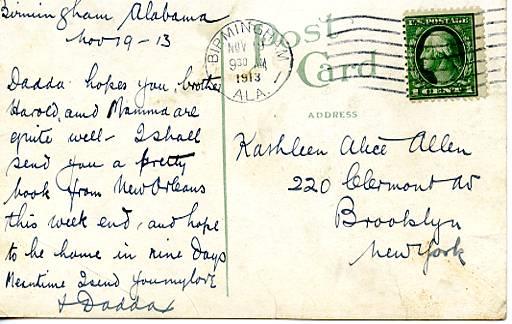 Birmingham Alabama
Nov 19 - 13
Dadda hopes you, brother
Harold, and Mamma are
quite well - I shall
send you a pretty
book from New Orleans
this week end, and hope
to be home in nine Days
Meantime I send you my love
x Dadda x
Post
Card
ADDRESS
BIRMINGHAM
NOV
930 AM
1913
ALA.
U.S. POSTAGE
1 CENT 1
Kathleen Alice Allen
220 Clermont av
Brooklyn
New York